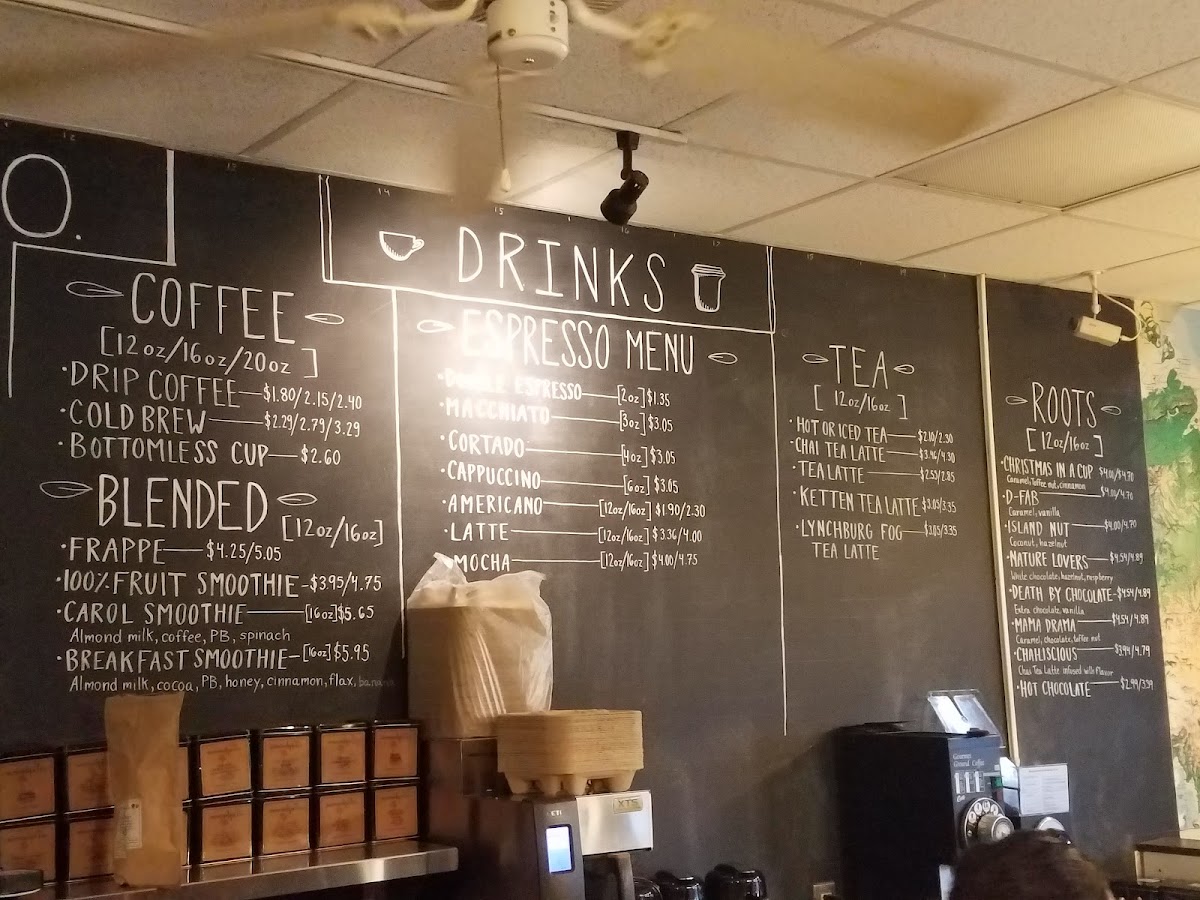 O.
DRINKS
COFFEE
[12oz/16oz/20oz]
·DRIP COFFEE—$1.80/2.15/2.40
·COLD BREW—$2.29/2.79/3.29
·BOTTOMLESS CUP—$2.60
BLENDED [12oz/16oz]
·FRAPPE—$4.25/5.05
·100% FRUIT SMOOTHIE-$3.95/4.75
·CAROL SMOOTHIE—[16oz]$5.65
Almond milk, coffee, PB, spinach
·BREAKFAST SMOOTHIE-[16oz]$5.95
Almond milk, cocoa, PB, honey, cinnamon, flax, banana
ESPRESSO MENU
·DOUBLE ESPRESSO—[2oz]$1.35
·MACCHIATO—[3oz]$3.05
·CORTADO—[4oz]$3.05
·CAPPUCCINO—[6oz]$3.05
·AMERICANO—[12oz/16oz]$1.90/2.30
·LATTE—[12oz/16oz]$3.36/4.00
·MOCHA—[12oz/16oz]$4.00/4.75
TEA
[12oz/16oz]
·HOT OR ICED TEA—$2.10/2.30
·CHAI TEA LATTE—$3.46/4.30
·TEA LATTE—$2.55/2.85
·KETTEN TEA LATTE $3.05/3.35
·LYNCHBURG FOG—$3.05/3.35
TEA LATTE
ROOTS
[12oz/16oz]
·CHRISTMAS IN A CUP $4.00/$4.70
Caramel, Toffee nut, cinnamon
·D-FAB—$4.00/$4.70
Caramel, vanilla
·ISLAND NUT—$4.00/4.70
Coconut, hazelnut
·NATURE LOVERS—$4.54/4.89
White chocolate, hazelnut, raspberry
·DEATH BY CHOCOLATE-$4.54/4.89
Extra chocolate, vanilla
·MAMA DRAMA—$4.54/4.89
Caramel, chocolate, toffee nut
·CHAILISCIOUS—$3.94/4.79
Chai Tea Latte infused with flavor
·HOT CHOCOLATE—$2.99/3.39
XTS
Gourmet
Ground Coffee